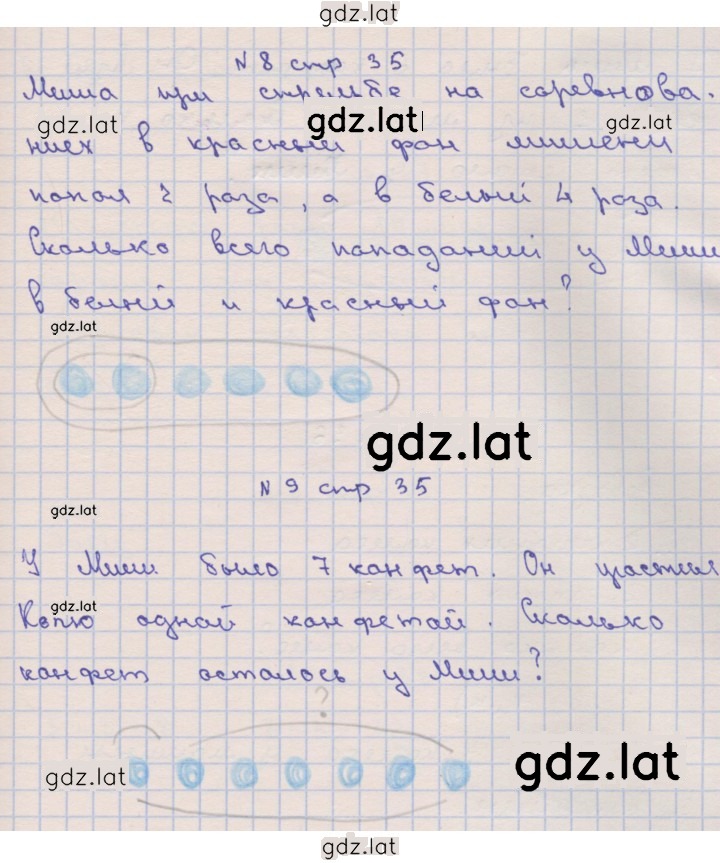 gdz.lat
№8 стр 35
Миша при стрельбе на соревнова-
gdz.lat gdz.lat gdz.lat
ниех в красный фон мишени
попал 2 раза, а в белый 4 раза.
Сколько всего попаданий у Миши
в белый и красный фон?
gdz.lat
gdz.lat
№ 9 стр 35
gdz.lat
У Миши было 7 канфет. Он угастил
gdz.lat
Капю одной канфетай. Сколько
канфет осталось у Миши?
?
gdz.lat gdz.lat
gdz.lat